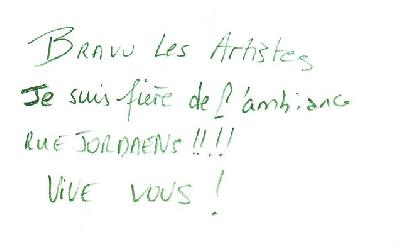 BRAVO Les Artistes
Je suis fière de l'ambiance
RUE JORDAENS !!!!
VIVE VOUS !